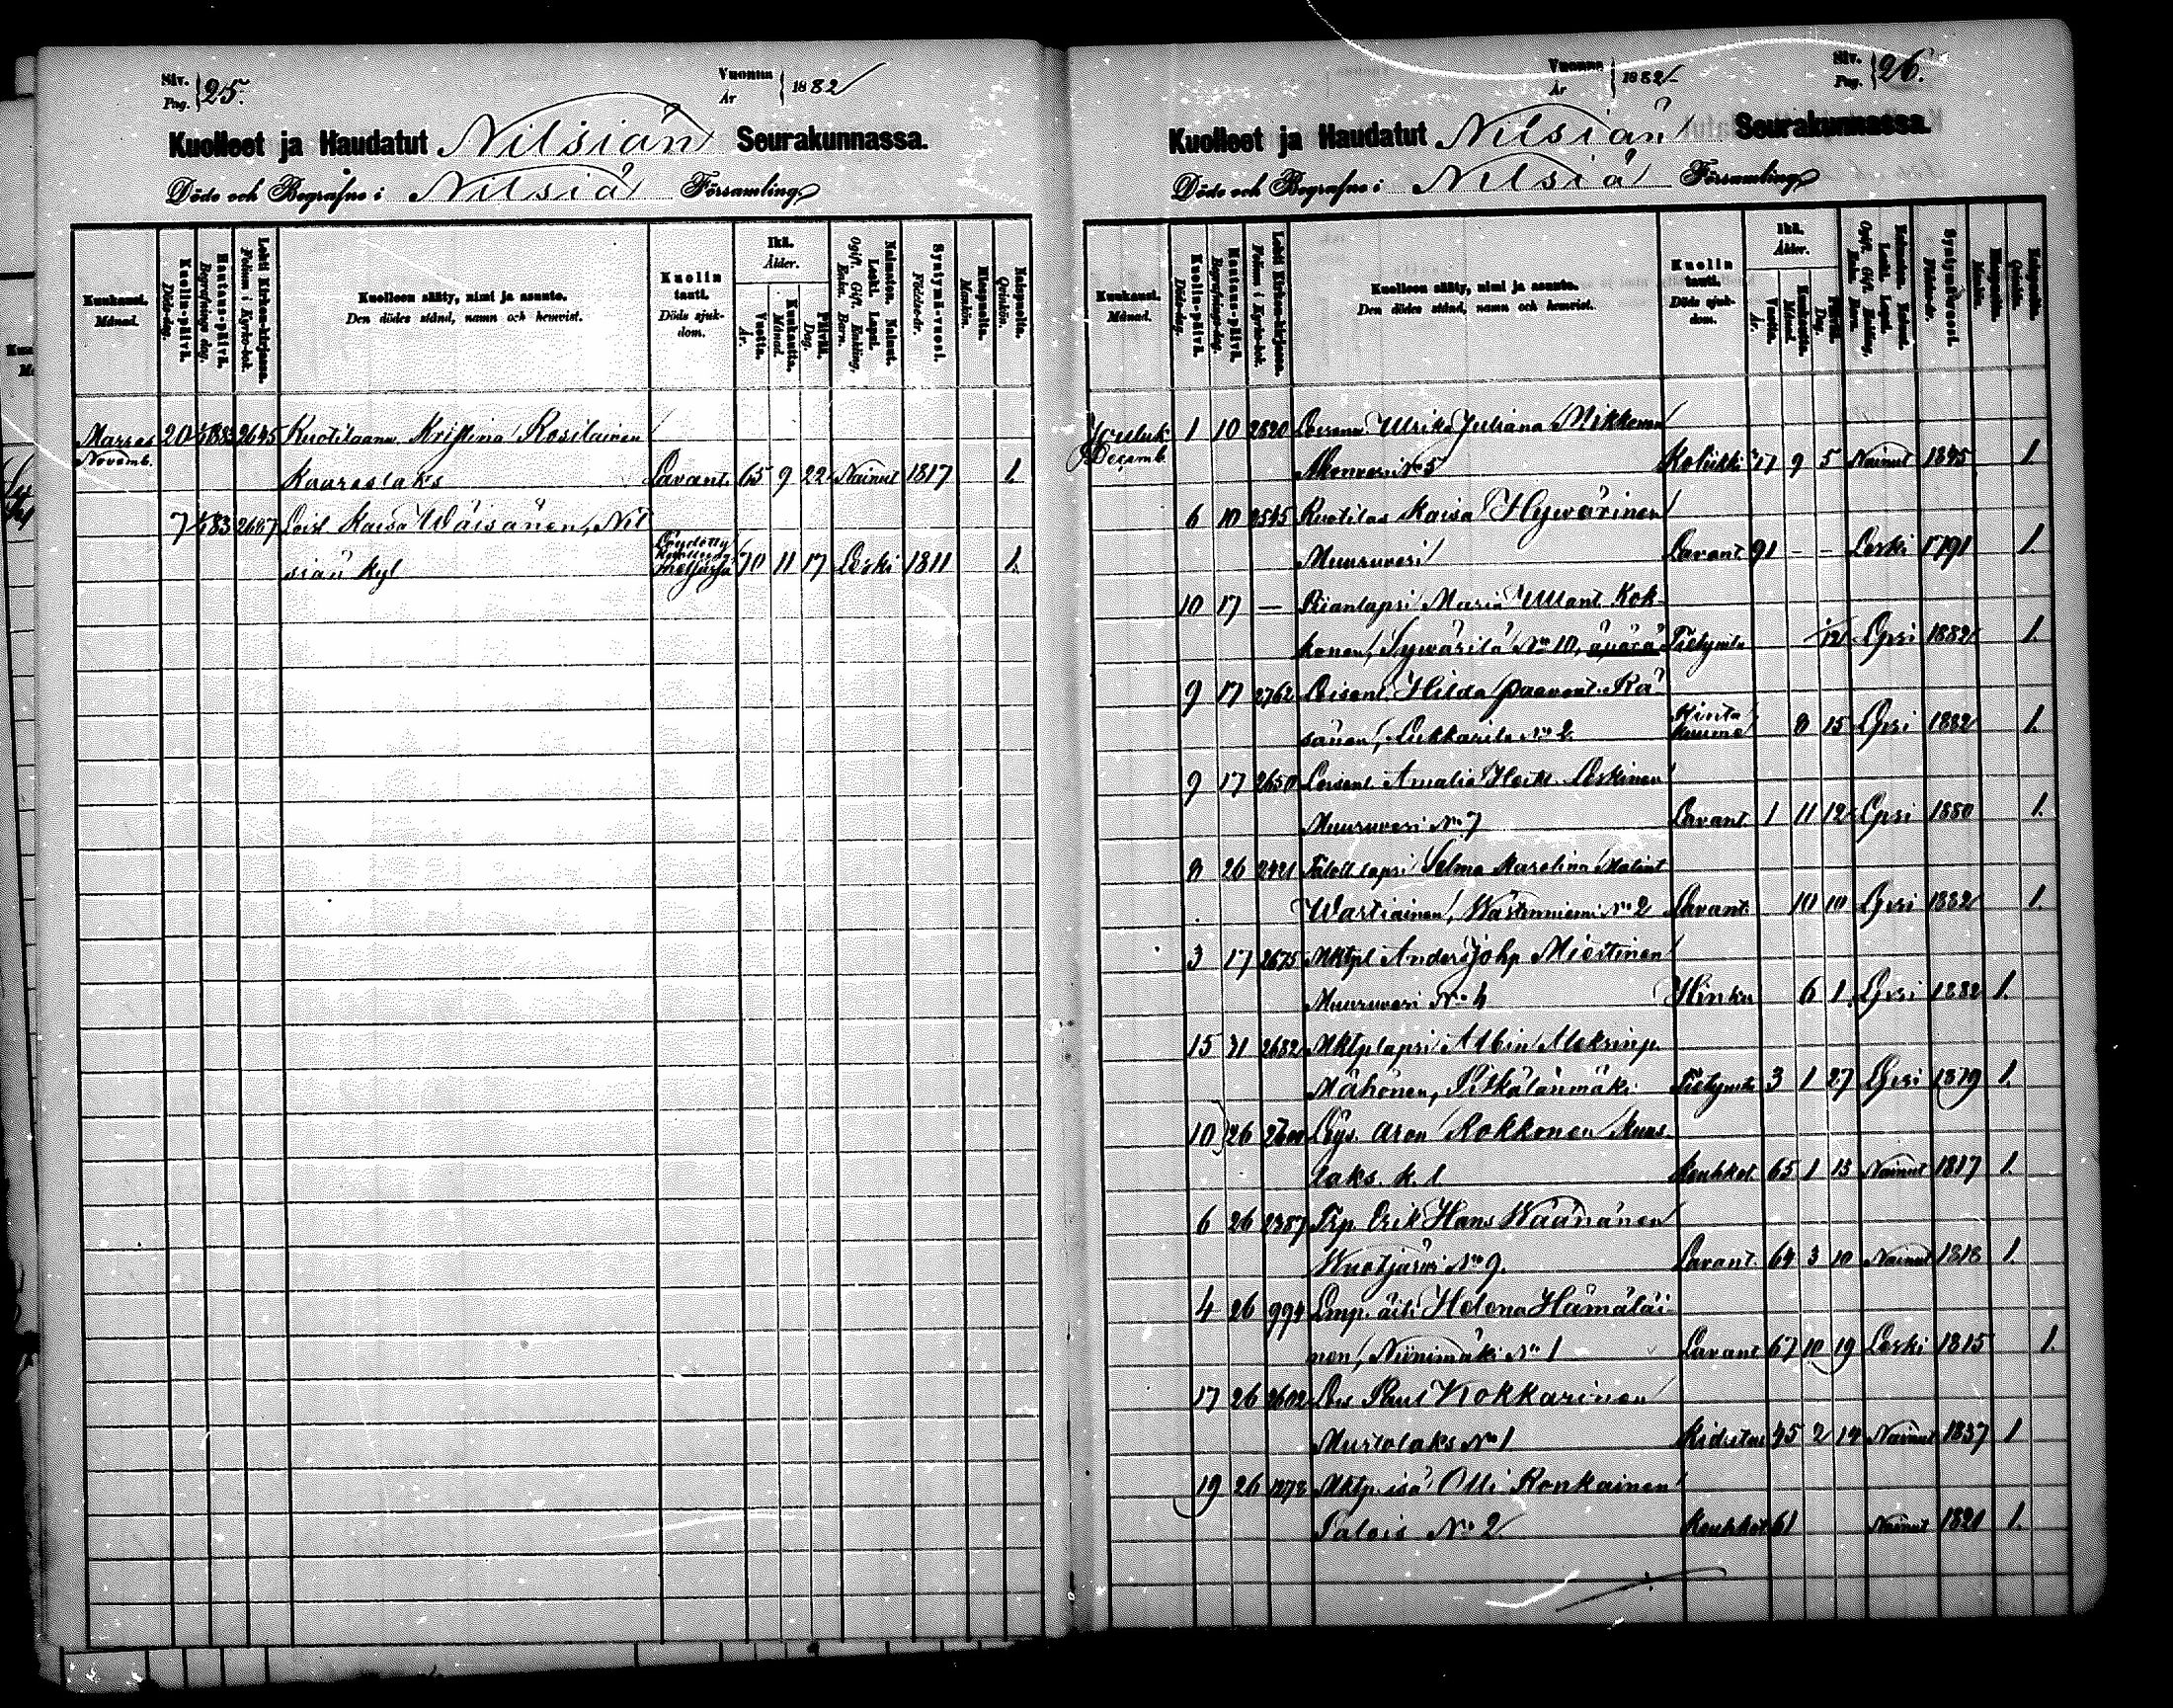 Siv.
Pag. 25.
Vuonna
År 1882
Kuolleet ja Haudatut Nilsiän Seurakunnassa.
Döde och Begrafne i Nilsiä Församling
Kuukausi.
Månad.
Kuolin-päivä.
Döds-dag.
Hautaus-päivä.
Begrafnings dag.
Lehti Kirkon-kirjassa.
Folium i Kyrko-bok.
Kuolleen sääty, nimi ja asunto.
Den dödes stånd, namn och hemvist.
Kuolin
tauti.
Döds sjuk-
dom.
Ikä.
Ålder.
Vuotta.
År.
Kuukautta.
Månad.
Päivää.
Dag.
Naimaton. Nainut.
Leski. Lapsi.
Ogift. Gift. Enkling.
Enka. Barn.
Syntymä-vuosi.
Födelse-år.
Miespuolia.
Mankön.
Naispuolia.
Qvinkön.
Marras 20 2645 Ruotilaanv. Kristina Rosilainen
Novemb.
Kaureslaks Lavant. 65 9 22 Nainut 1817 1.
7 2697 Loisl. Kaisa Wäisänen, Nil
siän kyl 70 11 17 Leski 1811 1.
Siv.
Pag. 26.
Vuonna
År 1882
Kuolleet ja Haudatut Nilsiän Seurakunnassa.
Döde och Begrafne i Nilsiä Församling
Kuukausi.
Månad.
Kuolin-päivä.
Döds-dag.
Hautaus-päivä.
Begrafnings-dag.
Lehti Kirkon-kirjassa.
Folium i Kyrko-bok.
Kuolleen sääty, nimi ja asunto.
Den dödes stånd, namn och hemvist.
Kuolin
tauti.
Döds sjuk-
dom.
Ikä.
Ålder.
Vuotta.
År.
Kuukautta.
Månad.
Päivää.
Dag.
Naimaton. Nainut.
Leski. Lapsi.
Ogift. Gift. Enkling.
Enka. Barn.
Syntymä-vuosi.
Födelse-år.
Miespuolia.
Mankön.
Naispuolia.
Qvinkön.
Jouluk 1 10 2820 Ulrika Juliana Mikkonen
Decemb.
Akonvesi No 5 Kolikki 9 5 Nainut 1845 1.
6 10 2545 Ruotilas Kaisa Hyvärinen
Muuruvesi Lavant 91 - - Leski 1791 1.
10 17 — Piianlapsi Maria Ullant. Kok-
konen, Syvärilä No 10, Lpsi 1882 1.
9 17 2762 Loisent. Hilda Paavont. Rä-
sänen, Lukkarila No 2 Hinta
kuume 8 15 Lpsi 1882 1.
9 17 2650 Loisent. Amalia Heikt. Leskinen
Muuruvesi No 7 Lavant 1 11 12 Lpsi 1880 1.
8 26 2421 Taloll. lapsi Selma Karolina Matint
Wartiainen, No 2 Lavant. 10 10 Lpsi 1882 1.
3 17 2675 Mktpl Anders Johp. Miettinen
Muuruvesi No 4 Hinku 6 1 Lpsi 1882 1.
15 31 2682 Mktplapsi Albin
Mähönen, Pitkälänmäki 3 1 27 Lpsi 1879 1.
10 26 Löys. Aron Kokkonen Muus-
laks. k. l Keuhkot. 65 1 13 Nainut 1817 1.
6 26 2387 Trp. Erik Hans Wäänänen
Wuotjärvi No 9. Lavant. 64 3 10 Nainut 1818 1.
4 26 994 Lmp. äiti Helena Hämäläi-
nen, Niinimäki No 1 Lavant 67 10 19 Leski 1815 1.
17 26 2602 Lois Paul Kokkarinen
Murtolaks No 1 Kidutus 45 2 14 Nainut 1837 1
19 26 1278 Mktp. isä Olli Ronkainen
Palois No 2 Keuhkot 61 Nainut 1821 1.